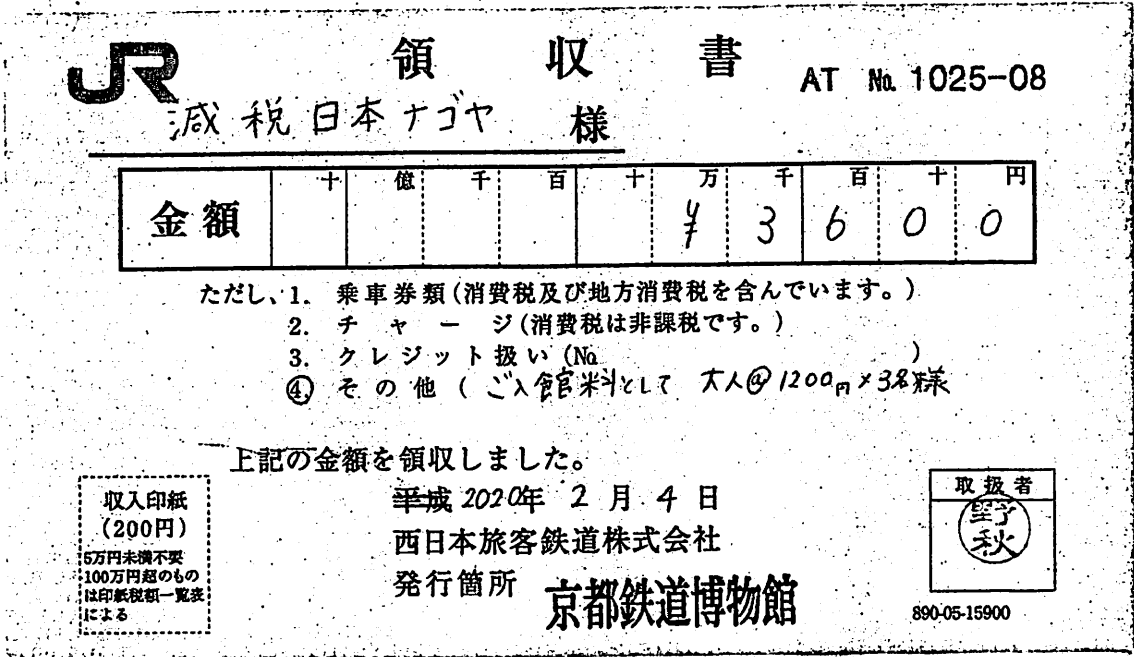 JR
領収書
AT No. 1025-08
減税日本ナゴヤ 様
金額 十 億 千 百 十 万 千 百 十 円
¥ 3 6 0 0
ただし、1. 乗車券類(消費税及び地方消費税を含んでいます。)
2. チャージ(消費税は非課税です。)
3. クレジット扱い(No. )
④ その他(ご入館料として 大人@1200円×3名様
上記の金額を領収しました。
平成 2020年 2月 4日
西日本旅客鉄道株式会社
発行箇所 京都鉄道博物館
収入印紙
(200円)
5万円未満不要
100万円超のもの
は印紙税額一覧表
による
取扱者
野秋
890-05-15900